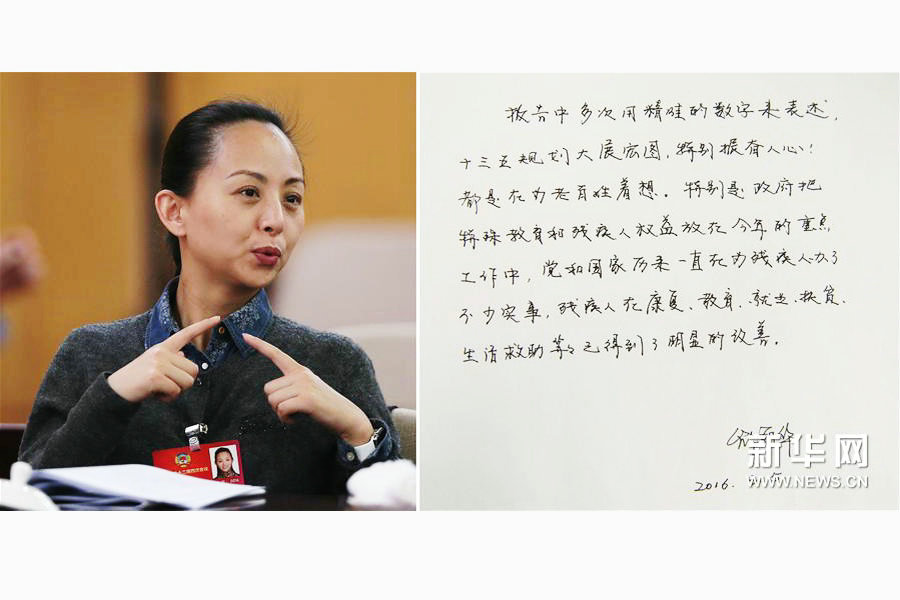 报告中多次用精准的数字来表述,
十三五规划大展宏图,特别振奋人心!
都是在为老百姓着想。特别是政府把
特殊教育和残疾人权益放在今年的重点
工作中,党和国家历来一直在为残疾人办了
不少实事,残疾人在康复、教育、就业、扶贫、
生活救助等已得到了明显的改善。
2016.
新华网
WWW.NEWS.CN